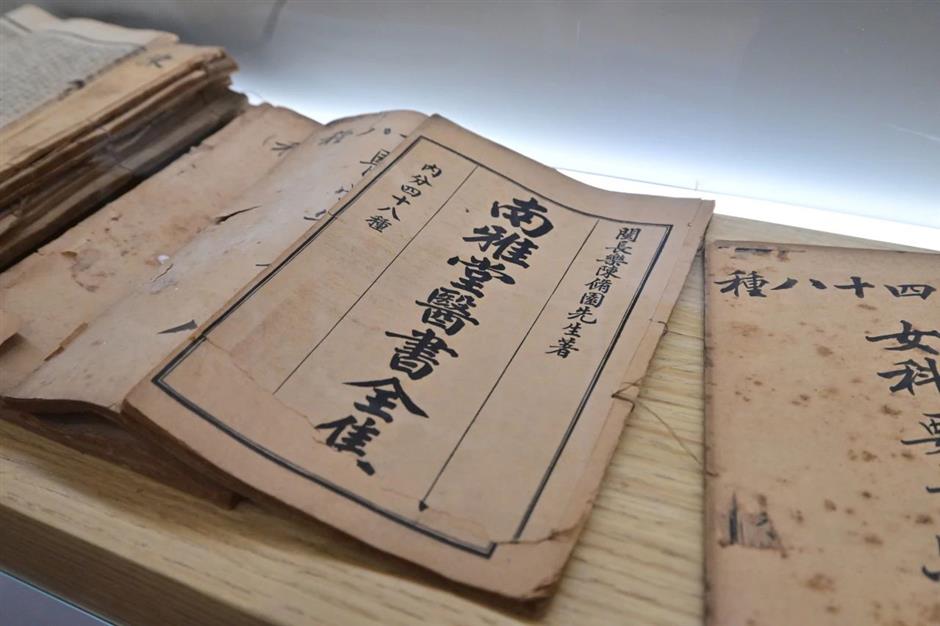 閩長樂陳脩園先生著
南雅堂醫書全集
內分四十八種
四十八種
女科要